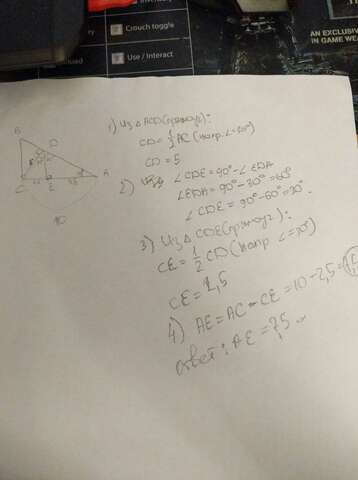 Crouch toggle
Use / Interact
AN EXCLUSIVE
IN GAME WEA
B
D
C
E
A
10
1) Из △ ACD (прямоуг):
CD = 1/2 AC (напр ∠=30°)
CD = 5
2) ∠CDE = 90° - ∠EDA
∠EDA = 90° - 30° = 60°
∠CDE = 90° - 60° = 30°.
3) Из △ CDE (прямоуг):
CE = 1/2 CD (напр ∠=30°)
CE = 2,5
4) AE = AC - CE = 10 - 2,5 = 7,5
ответ: AE = 7,5